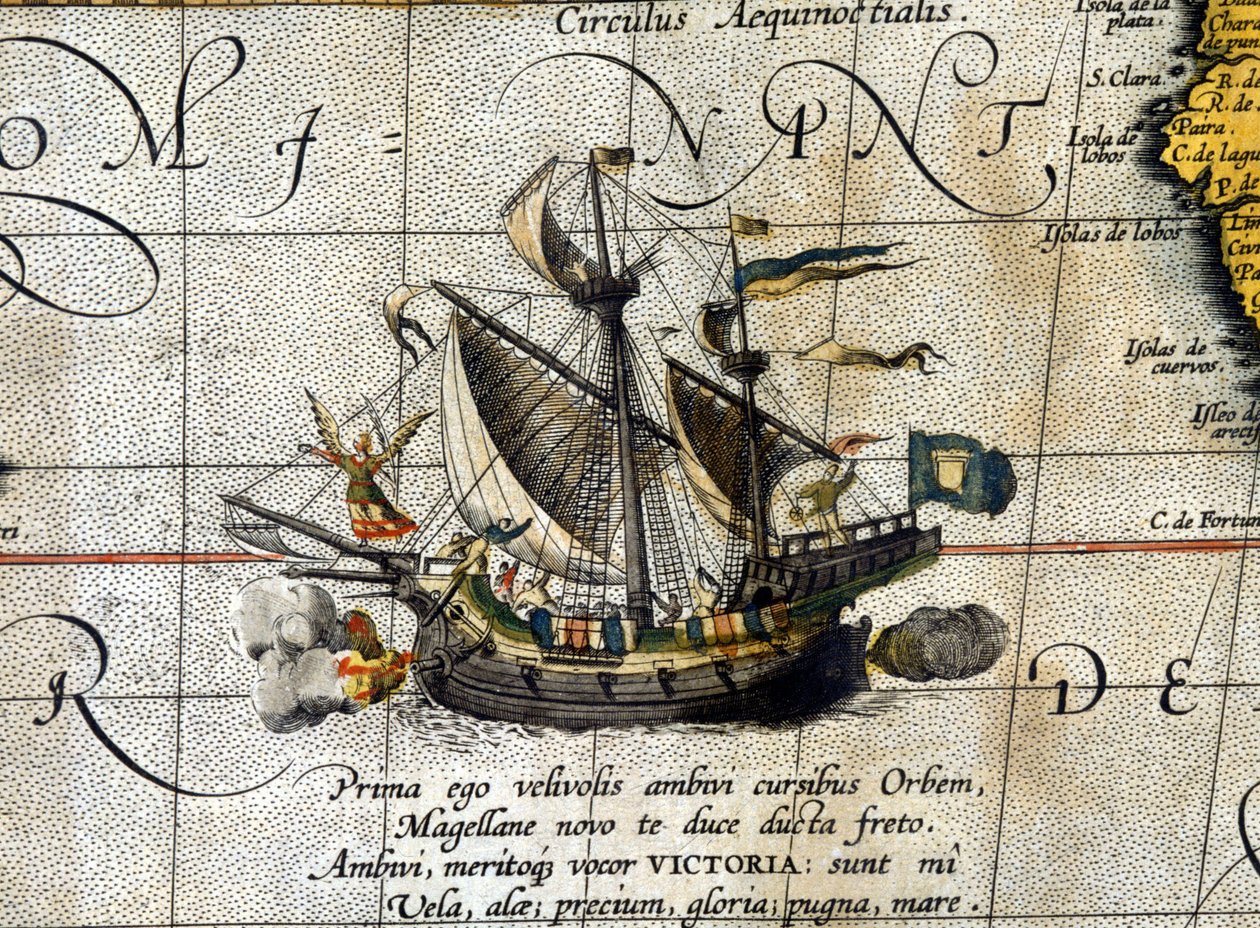 Circulus Aequinoctialis.
Isola de la
plata.
Chara
de pun
S. Clara
R. de
R. de
Paira.
C. de lagu
P. de
OMI =
NANT
Isola de
lobos
Isolas de lobos
Lim
Civi
Pa
Isolas de
cuervos.
Isleo d
arecif
C. de Fortun
ri
R
DE
Prima ego velivolis ambivi cursibus Orbem,
Magellane novo te duce ducta freto.
Ambivi, meritoq́ꝫ vocor VICTORIA: sunt mî
Vela, alæ; precium, gloria; pugna, mare.